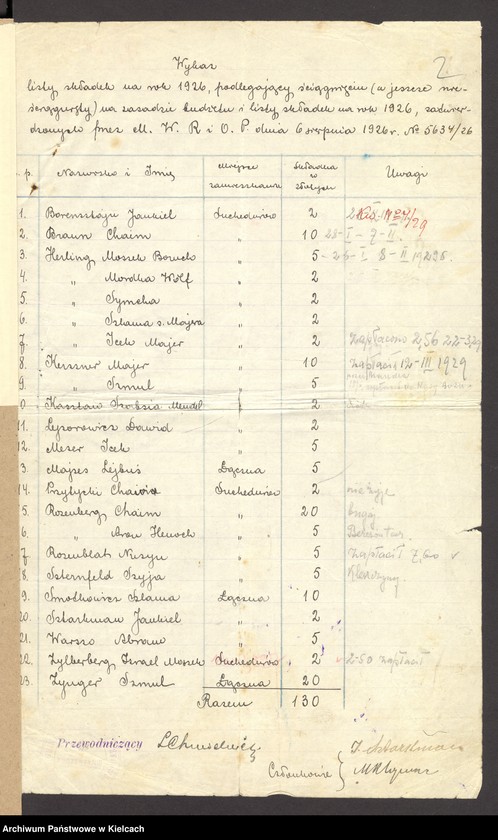 2
Wykaz
listy składek na rok 1926, podlegający ściągnięciu (a jeszcze nie-
ściągnięty) na zasadzie budżetu i listy składek na rok 1926, zatwier-
dzonych przez M. W. R i O. P. dnia 6 sierpnia 1926 r. № 5634/26
p. Nazwisko i Imię Miejsce zamieszkania Składka w złotych Uwagi
1. Borensztajn Jankiel Suchedniów 2
2. Braun Chaim " 10 23-I - 7-II.
3. Herling Moszek " 5
4. " Mordka Wolf " 2
5. " Symcha " 2
6. " Szlama s. Majera " 2
7. " Icek Majer " 2 zapłacono 2,56
8. Kerszner Majer " 10 zapłacił 12-III 1929
9. " Szmul " 5
0. Kasztan Mendel " 2
11. Lezorowicz Dawid " 2
12. Meser Icek " 5
3. Majzes Lejbuś Łączna 5
14. Przytycki Suchedniów 2 nie żyje
5. Rozenberg Chaim " 20
6. " Aron Henoch " 5
7. Rozenblat Nusyn " 5 zapłacił 7,60 v
8. Szternfeld Szyja " 5
9. Smotkowicz Szlama Łączna 10
20. Sztarkman Jankiel " 2
21. Warszo Abram " 5
22. Zylberberg Izrael Moszek Suchedniów 2 2-50 zapłacił
23. Zynger Szmul Łączna 20
Razem 130
Przewodniczący
Członkowie
Archiwum Państwowe w Kielcach